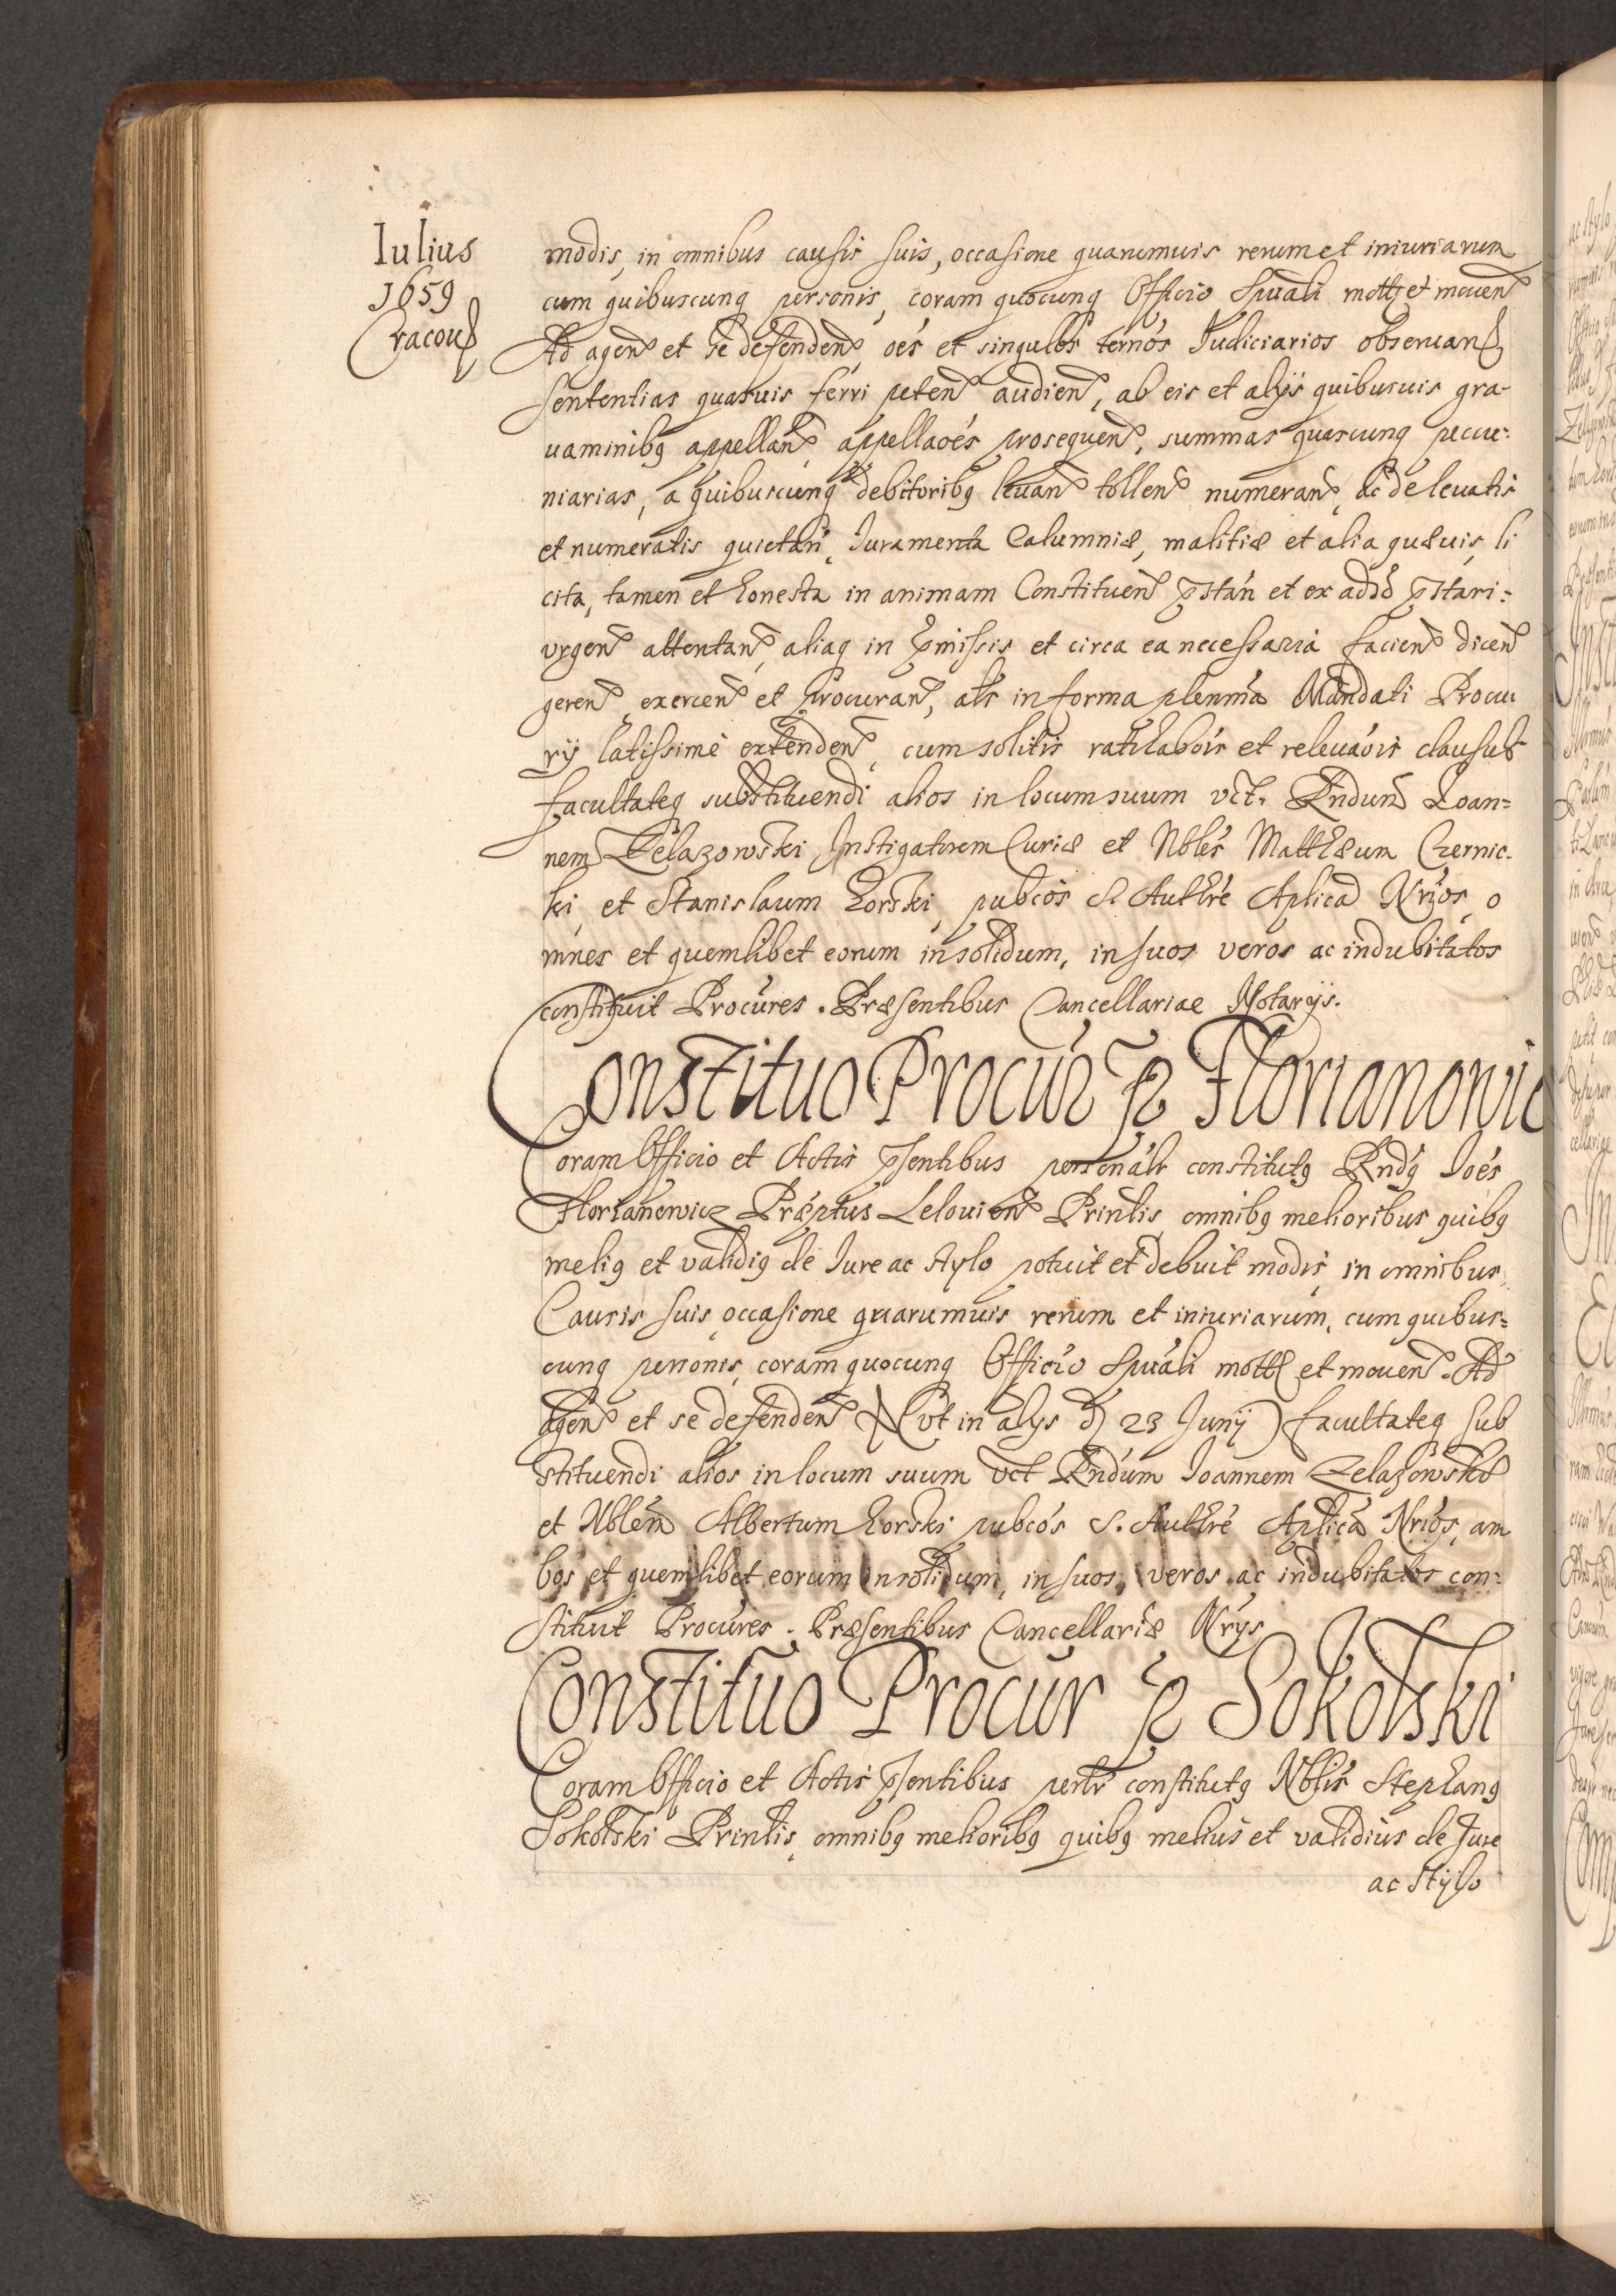 Iulius
1659
Cracou
modis, in omnibus causis suis, occasione quarumuis rerum et iniuriarum
cum quibuscunq personis, coram quocunq Officio Spuali mott et mouen
Ad agen et se defenden oés et singulos ternos Iudiciarios obseruan
sententias quasuis ferri peten audien, ab eis et alijs quibusuis gra-
uaminibq appellan, appellaoés prosequen, summas quascunq pecu-
niarias, a quibuscunq debitoribq leuan tollen numeran, ac de leuatis
et numeratis quietan, Iuramenta Calumniæ, malitiæ et alia quæuis, li
cita, tamen et honesta in animam Constituen pstan et ex adso pstari:
vrgen attentan, aliaq in pmissis et circa ea necessaria facien dicen
geren, exercen et procuran, als in forma plenma Mandati Procu
rij latissime extenden, cum solitis ratihabois et releuaois clausul
facultateq substituendi alios in locum suum vct. Rndum Ioan=
nem Zelazowski Instigatorem Curiæ et Nbles Matthæum Czernic-
ki, et Stanislaum Zorski, pubcos S. Authre Aplica Nrios, o
mnes et quemlibet eorum insolidum, in suos veros ac indubitatos
constituit Procures. Præsentibus Cancellariae Notarijs.
Constituo Procur p Florianowic
Coram Officio et Actis psentibus personalr constitutq Rndq Ioés
Florianowicz Præptus Lelouien Prinlis omnibq melioribus quibq
meliq et validiq de Iure ac stylo potuit et debuit modis, in omnibus
Causis suis, occasione quarumuis rerum et iniuriarum, cum quibus=
cunq personis, coram quocunq Officio Spuali mott et mouen. Ad
agen et se defenden (vt in alijs d 23 Junij) facultateq sub
stituendi alios in locum suum vct Rndum Ioannem Zelazowski
et Nblem Albertum Zorski pubcos S. Authre Aplica Nrios, am
bos et quemlibet eorum insolidum, in suos, veros ac indubitatos con=
stituit Procures. Præsentibus Cancellariæ Nrijs
Constituo Procur p Sokolski
Coram Officio et Actis psentibus perlr constitutq Nblis Stephanq
Sokolski Prinlis, omnibq melioribq quibq melius et validius de Jure
ac stylo